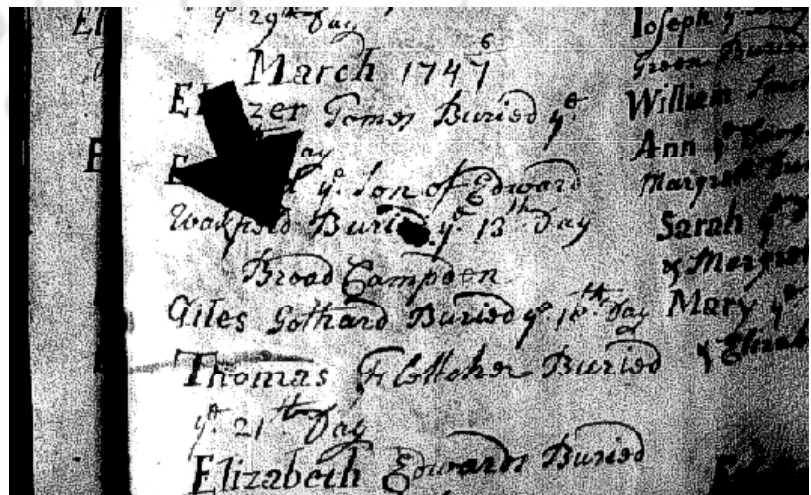 yᵉ 29th Day
March 1747 6
El zer Tomes Buried yᵉ
th Day
E d yᵉ Son of Edward
Wakfield Buried yᵉ 13th Day
Broad Campden
Giles Gothard Buried yᵉ 16th Day
Thomas Flettcher Buried
yᵉ 21th Day
Elizabeth Edwards Buried
Joseph yᵉ
Buried
William
Ann yᵉ
Margrett
Sarah yᵉ
& Margret
Mary yᵉ
& Elizab